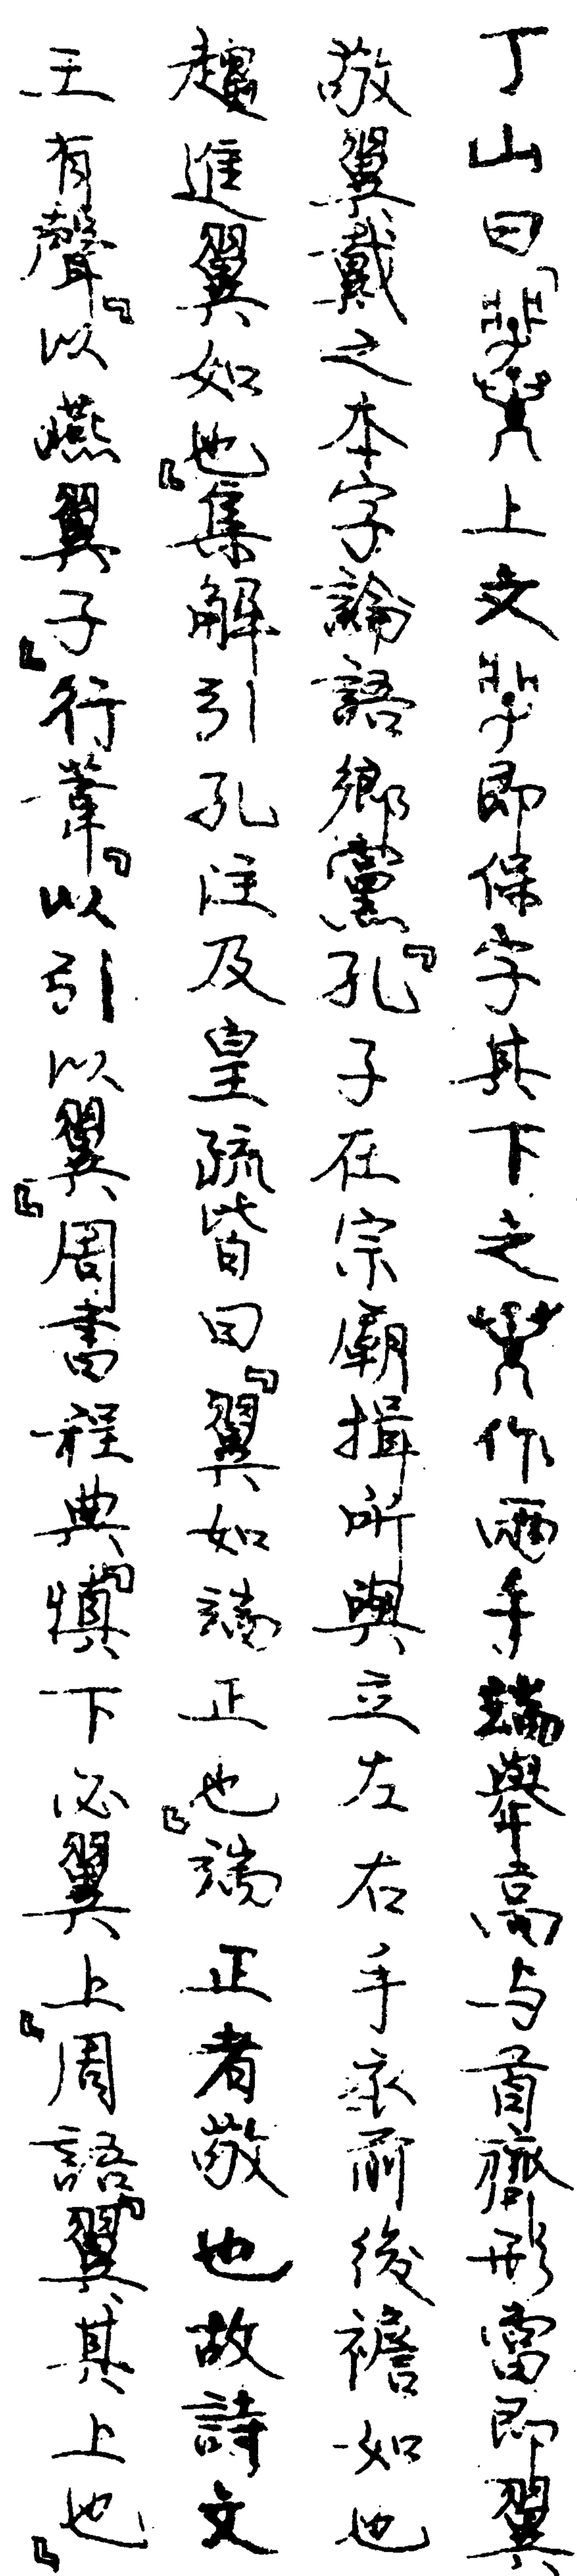 丁山曰「上文即保字其下之作兩手端舉高与首齊形當即翼
敬翼戴之本字論語鄉黨『孔子在宗廟揖所與立左右手衣前後襜如也
趨進翼如也』集解引孔注及皇疏皆曰『翼如端正也』端正者敬也故詩文
王有聲『以燕翼子』行葦『以引以翼』周書程典『慎下必翼上』周語『翼其上也』